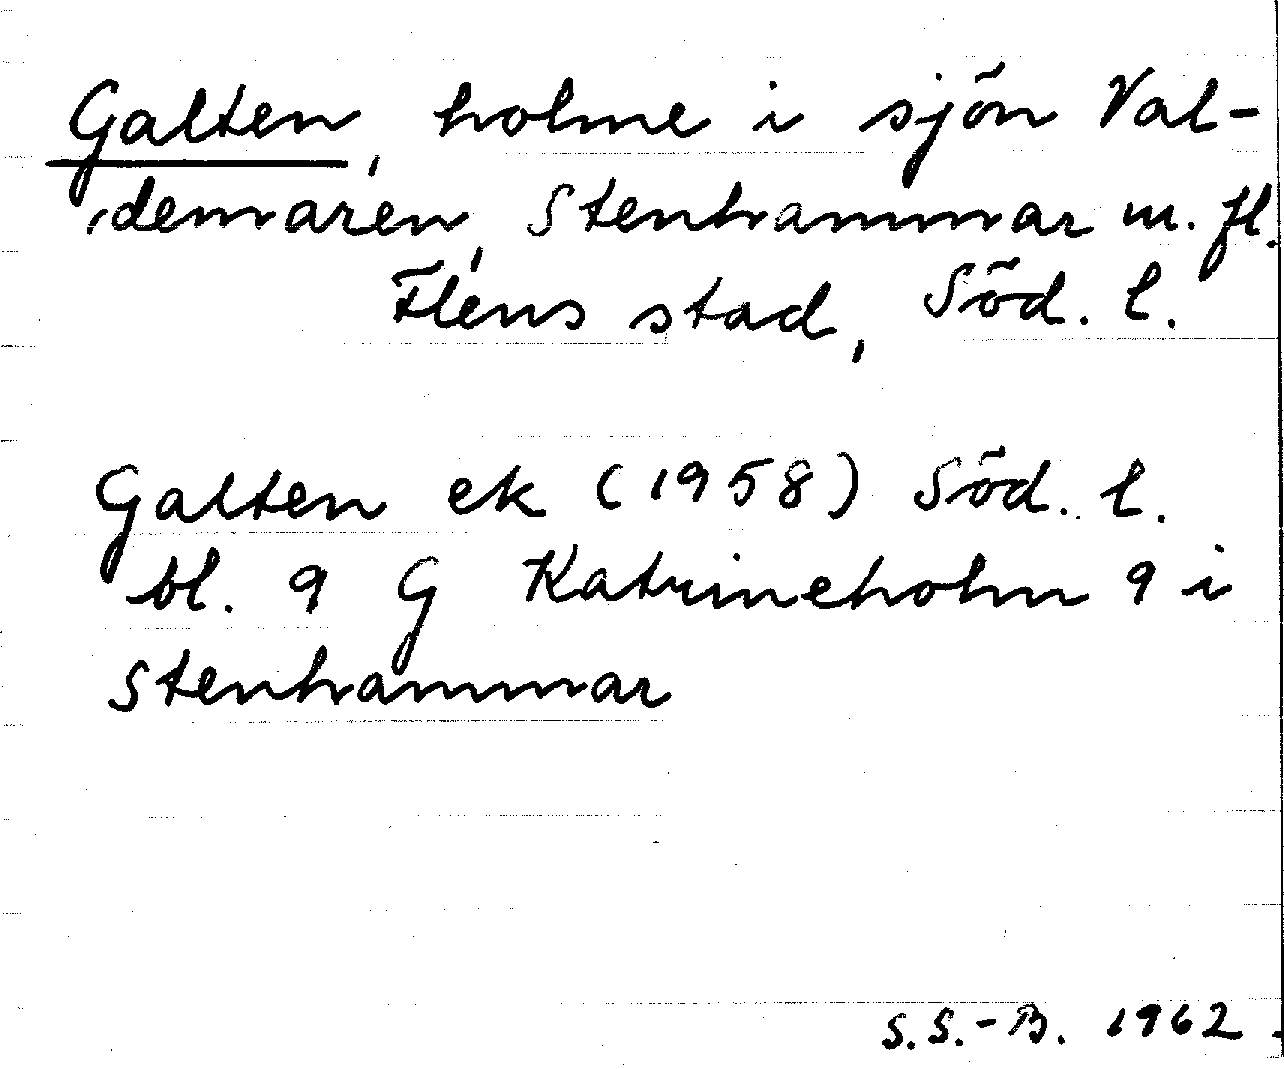 Galten, holme i sjön Val-
demaren, Stenhammar m. fl.
Flens stad, Söd. l.
Galten ek (1958) Söd. l.
bl. 9 G Katrineholm 9 i
Stenhammar
S.S.-B. 1962.